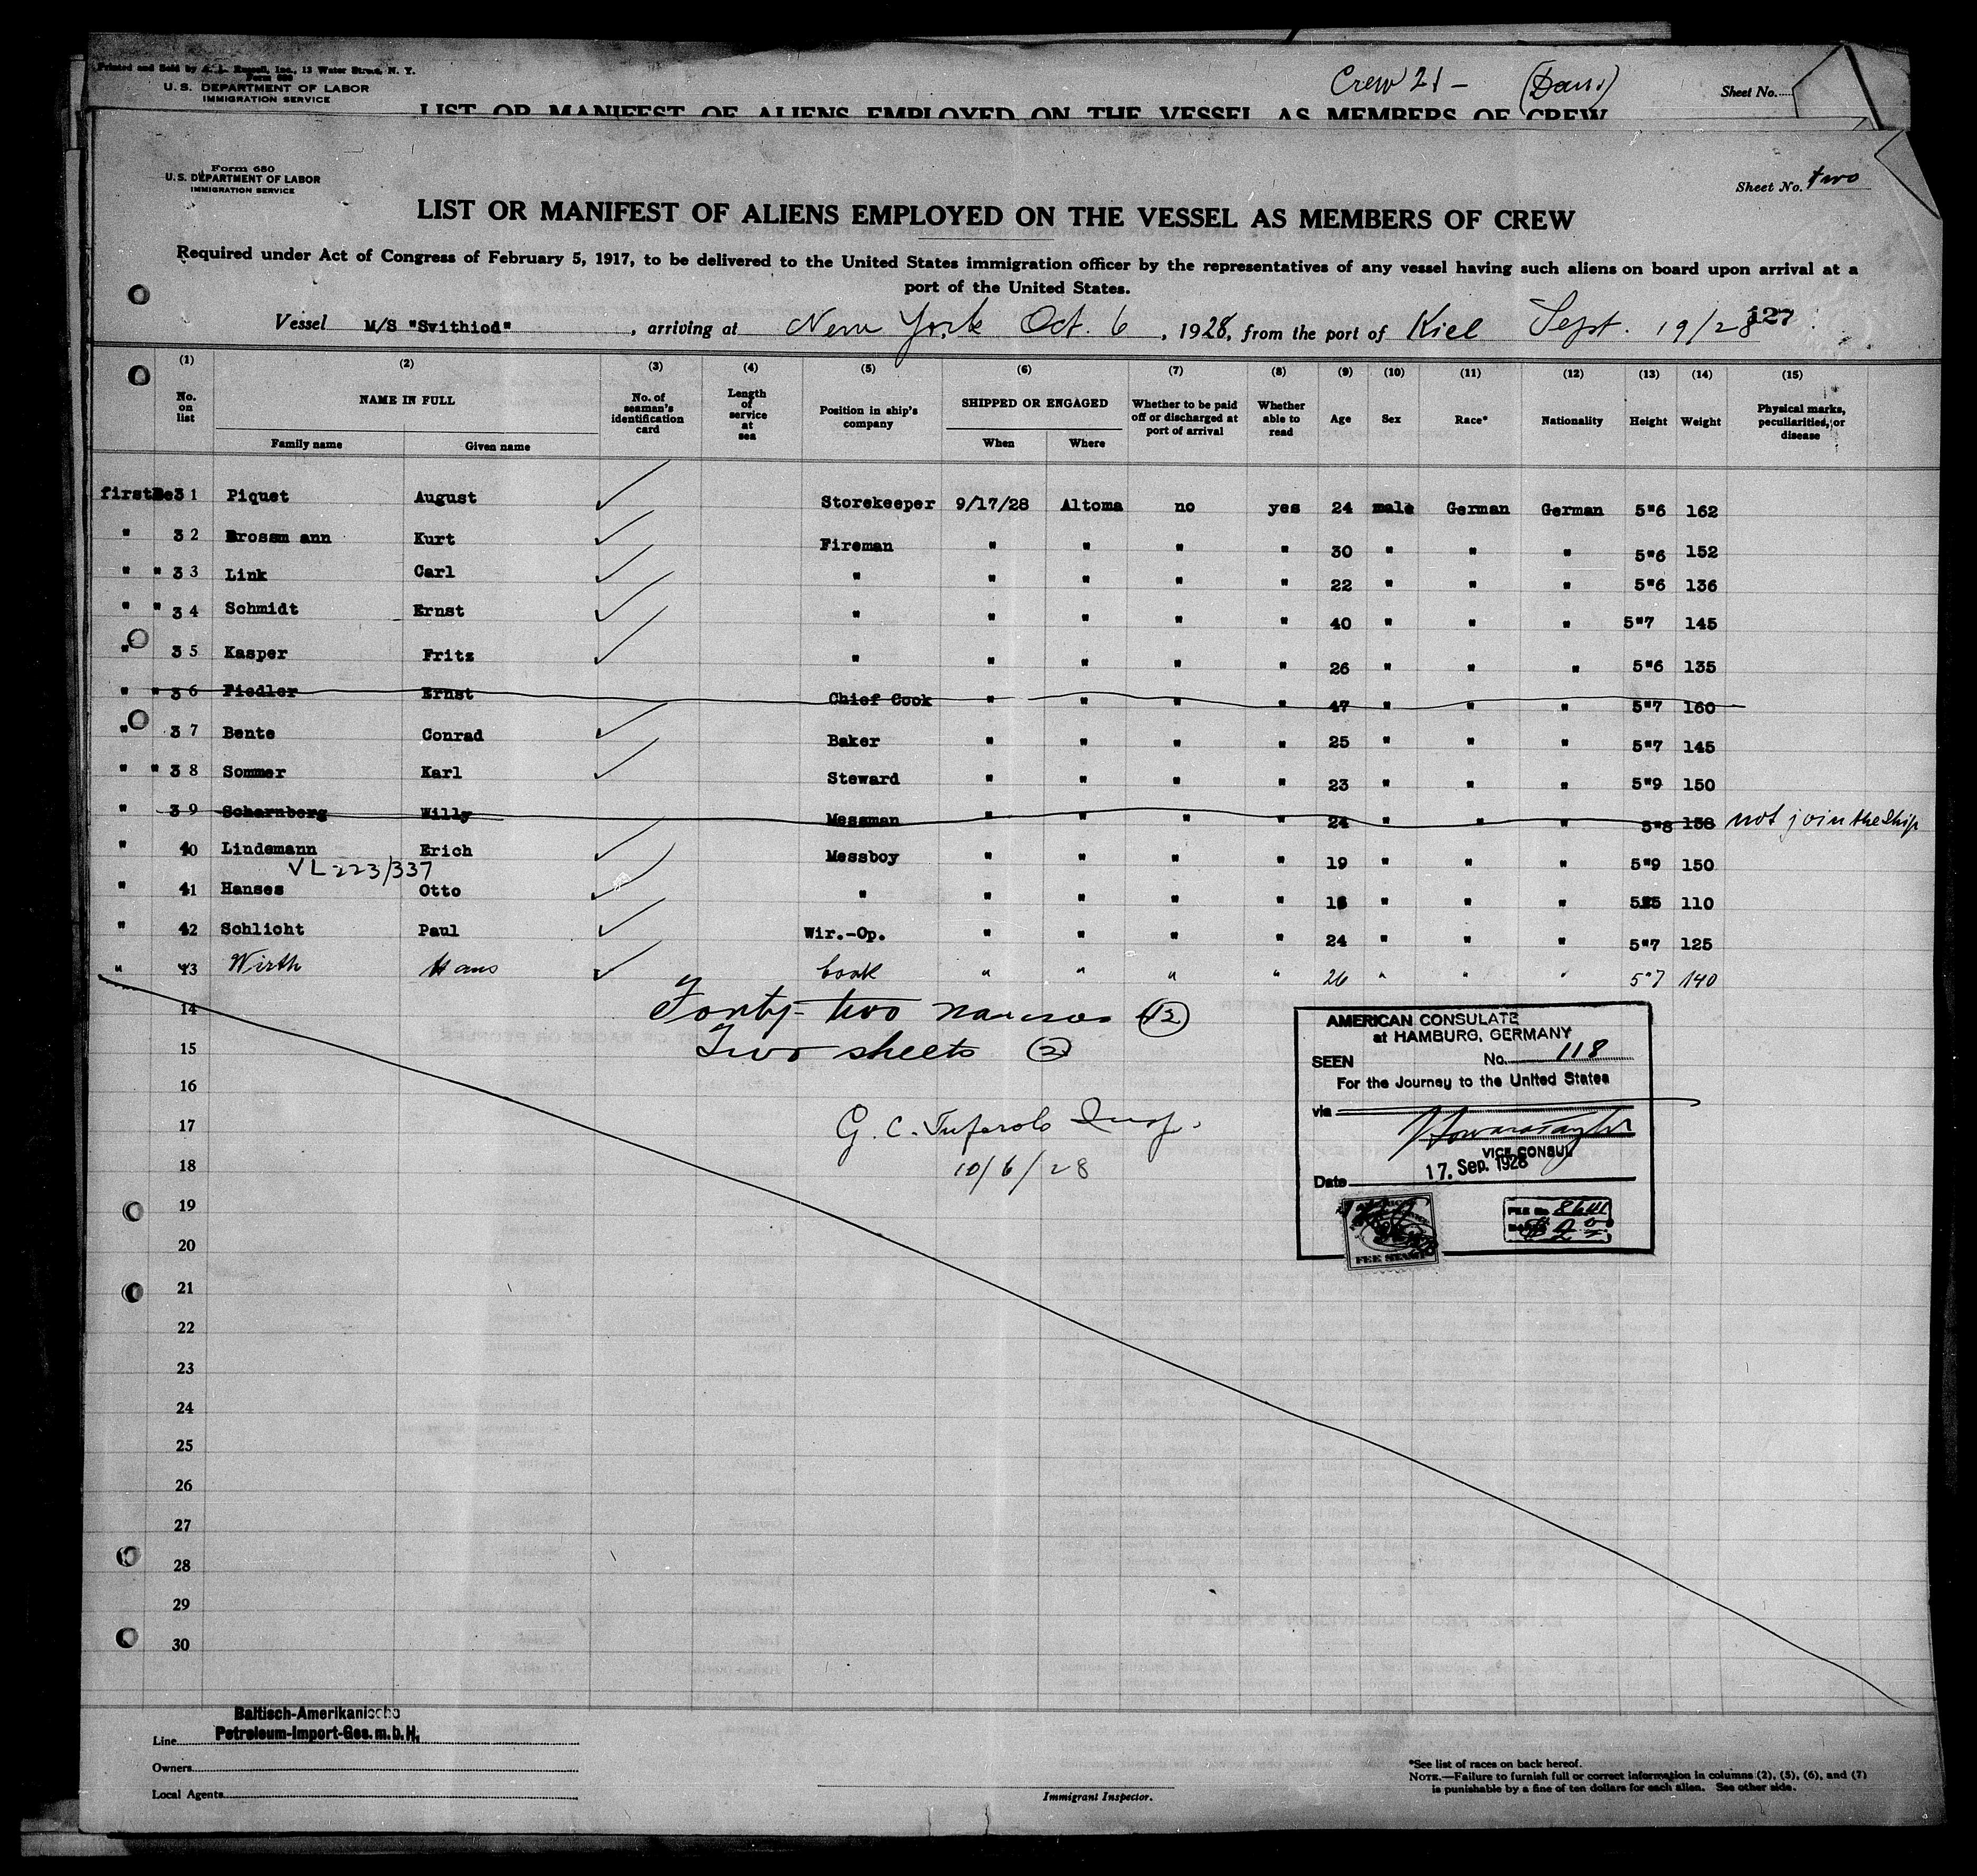 Printed and Sold by Russell, Inc., 13 Water Street, N. Y.
Form 680
U. S. DEPARTMENT OF LABOR
IMMIGRATION SERVICE
Crew 21 -
Sheet No.
LIST OR MANIFEST OF ALIENS EMPLOYED ON THE VESSEL AS MEMBERS OF CREW
Form 680
U. S. DEPARTMENT OF LABOR
IMMIGRATION SERVICE
Sheet No. two
LIST OR MANIFEST OF ALIENS EMPLOYED ON THE VESSEL AS MEMBERS OF CREW
Required under Act of Congress of February 5, 1917, to be delivered to the United States immigration officer by the representatives of any vessel having such aliens on board upon arrival at a
port of the United States.
127
Vessel M/S "Svithiod", arriving at New York Oct. 6, 1928, from the port of Kiel Sept. 19/28
(1) (2) (3) (4) (5) (6) (7) (8) (9) (10) (11) (12) (13) (14) (15)
No. on list NAME IN FULL No. of seaman's identification card Length of service at sea Position in ship's company SHIPPED OR ENGAGED Whether to be paid off or discharged at port of arrival Whether able to read Age Sex Race* Nationality Height Weight Physical marks, peculiarities, or disease
Family name Given name When Where
31 Piquet August Storekeeper 9/17/28 Altoma no yes 24 male German German 5"6 162
" 32 Brossm ann Kurt Fireman " " " " 30 " " " 5"6 152
" " 33 Link Carl " " " " " 22 " " " 5"6 136
" " 34 Schmidt Ernst " " " " " 40 " " " 5"7 145
" 35 Kasper Fritz " " " " " 26 " " " 5"6 135
" " 36 Fiedler Ernst Chief Cook " " " " 47 " " " 5"7 160
" 37 Bente Conrad Baker " " " " 25 " " " 5"7 145
" " 38 Sommer Karl Steward " " " " 23 " " " 5"9 150
" 39 Scharnberg Willy Messman " " " " 24 " " " 5"8 158 not join the Ship
" 40 Lindemann Erich Messboy " " " " 19 " " " 5"9 150
VL 223/337
" 41 Hanses Otto " " " " " " " " 110
" 42 Schlicht Paul Wir.-Op. " " " " 24 " " " 5"7 125
" 43 Wirth Hans Cook " " " " 26 " " " 5"7 140
14
Forty-two names 42
15
Two sheets 2
16
17
G. C. Insp.
18
10/6/28
19
20
21
22
23
24
25
26
27
28
29
30
AMERICAN CONSULATE
at HAMBURG, GERMANY
SEEN No. 118
For the Journey to the United States
via
VICE CONSUL
Date 17. Sep. 1928
FEE STAMP
Baltisch-Amerikanische
Line Petroleum-Import-Ges.m.b.H.
Owners
Local Agents
Immigrant Inspector.
*See list of races on back hereof.
NOTE.—Failure to furnish full or correct information in columns (2), (5), (6), and (7)
is punishable by a fine of ten dollars for each alien. See other side.